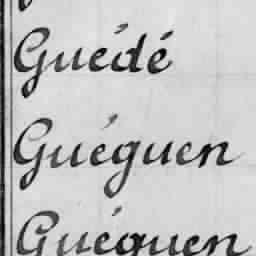 Guédé
Guéguen
Guéguen